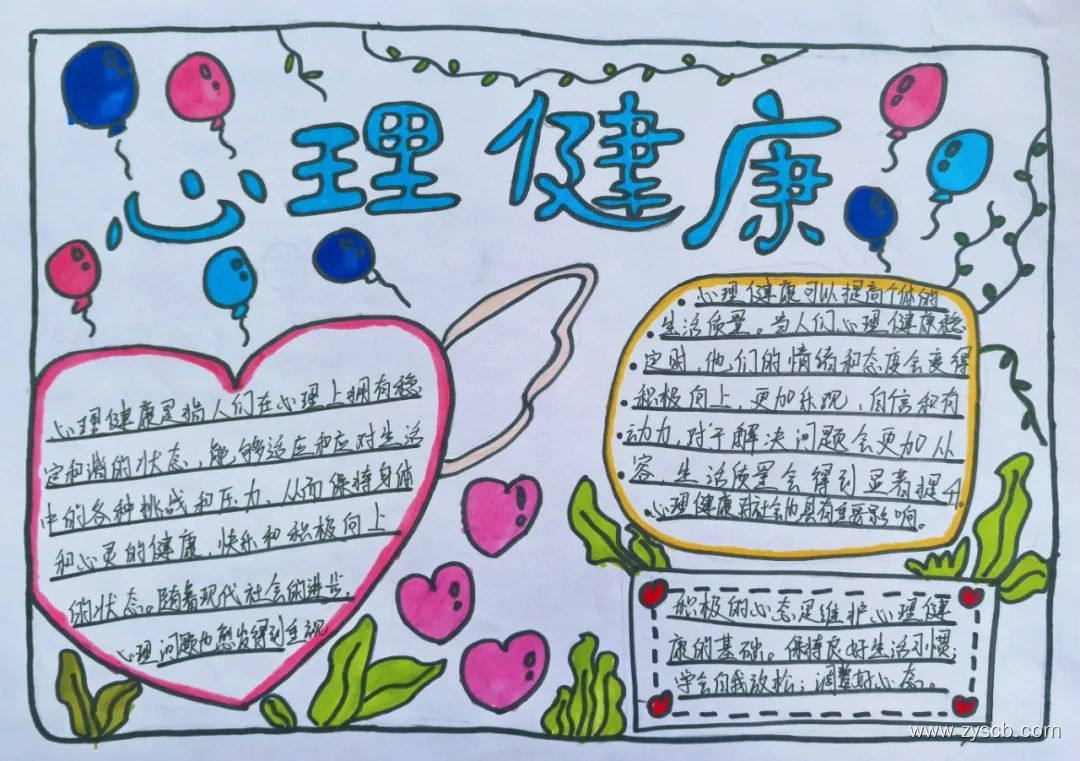 心理健康
心理健康是指人们在心理上拥有稳
定和谐的状态，能够适应和应对生活
中的各种挑战和压力，从而保持身体
和心灵的健康，快乐和积极向上
的状态。随着现代社会的进步，
心理问题也愈发得到重视
心理健康可以提高个体的
生活质量。当人们心理健康稳
定时，他们的情绪和态度会变得
积极向上，更加乐观、自信和有
动力，对于解决问题会更加从
容，生活质量会得到显著提升。
心理健康对社会也具有重要影响。
积极的心态是维护心理健
康的基础。保持良好生活习惯；
学会自我放松；调整好心态。
www.zyscb.com